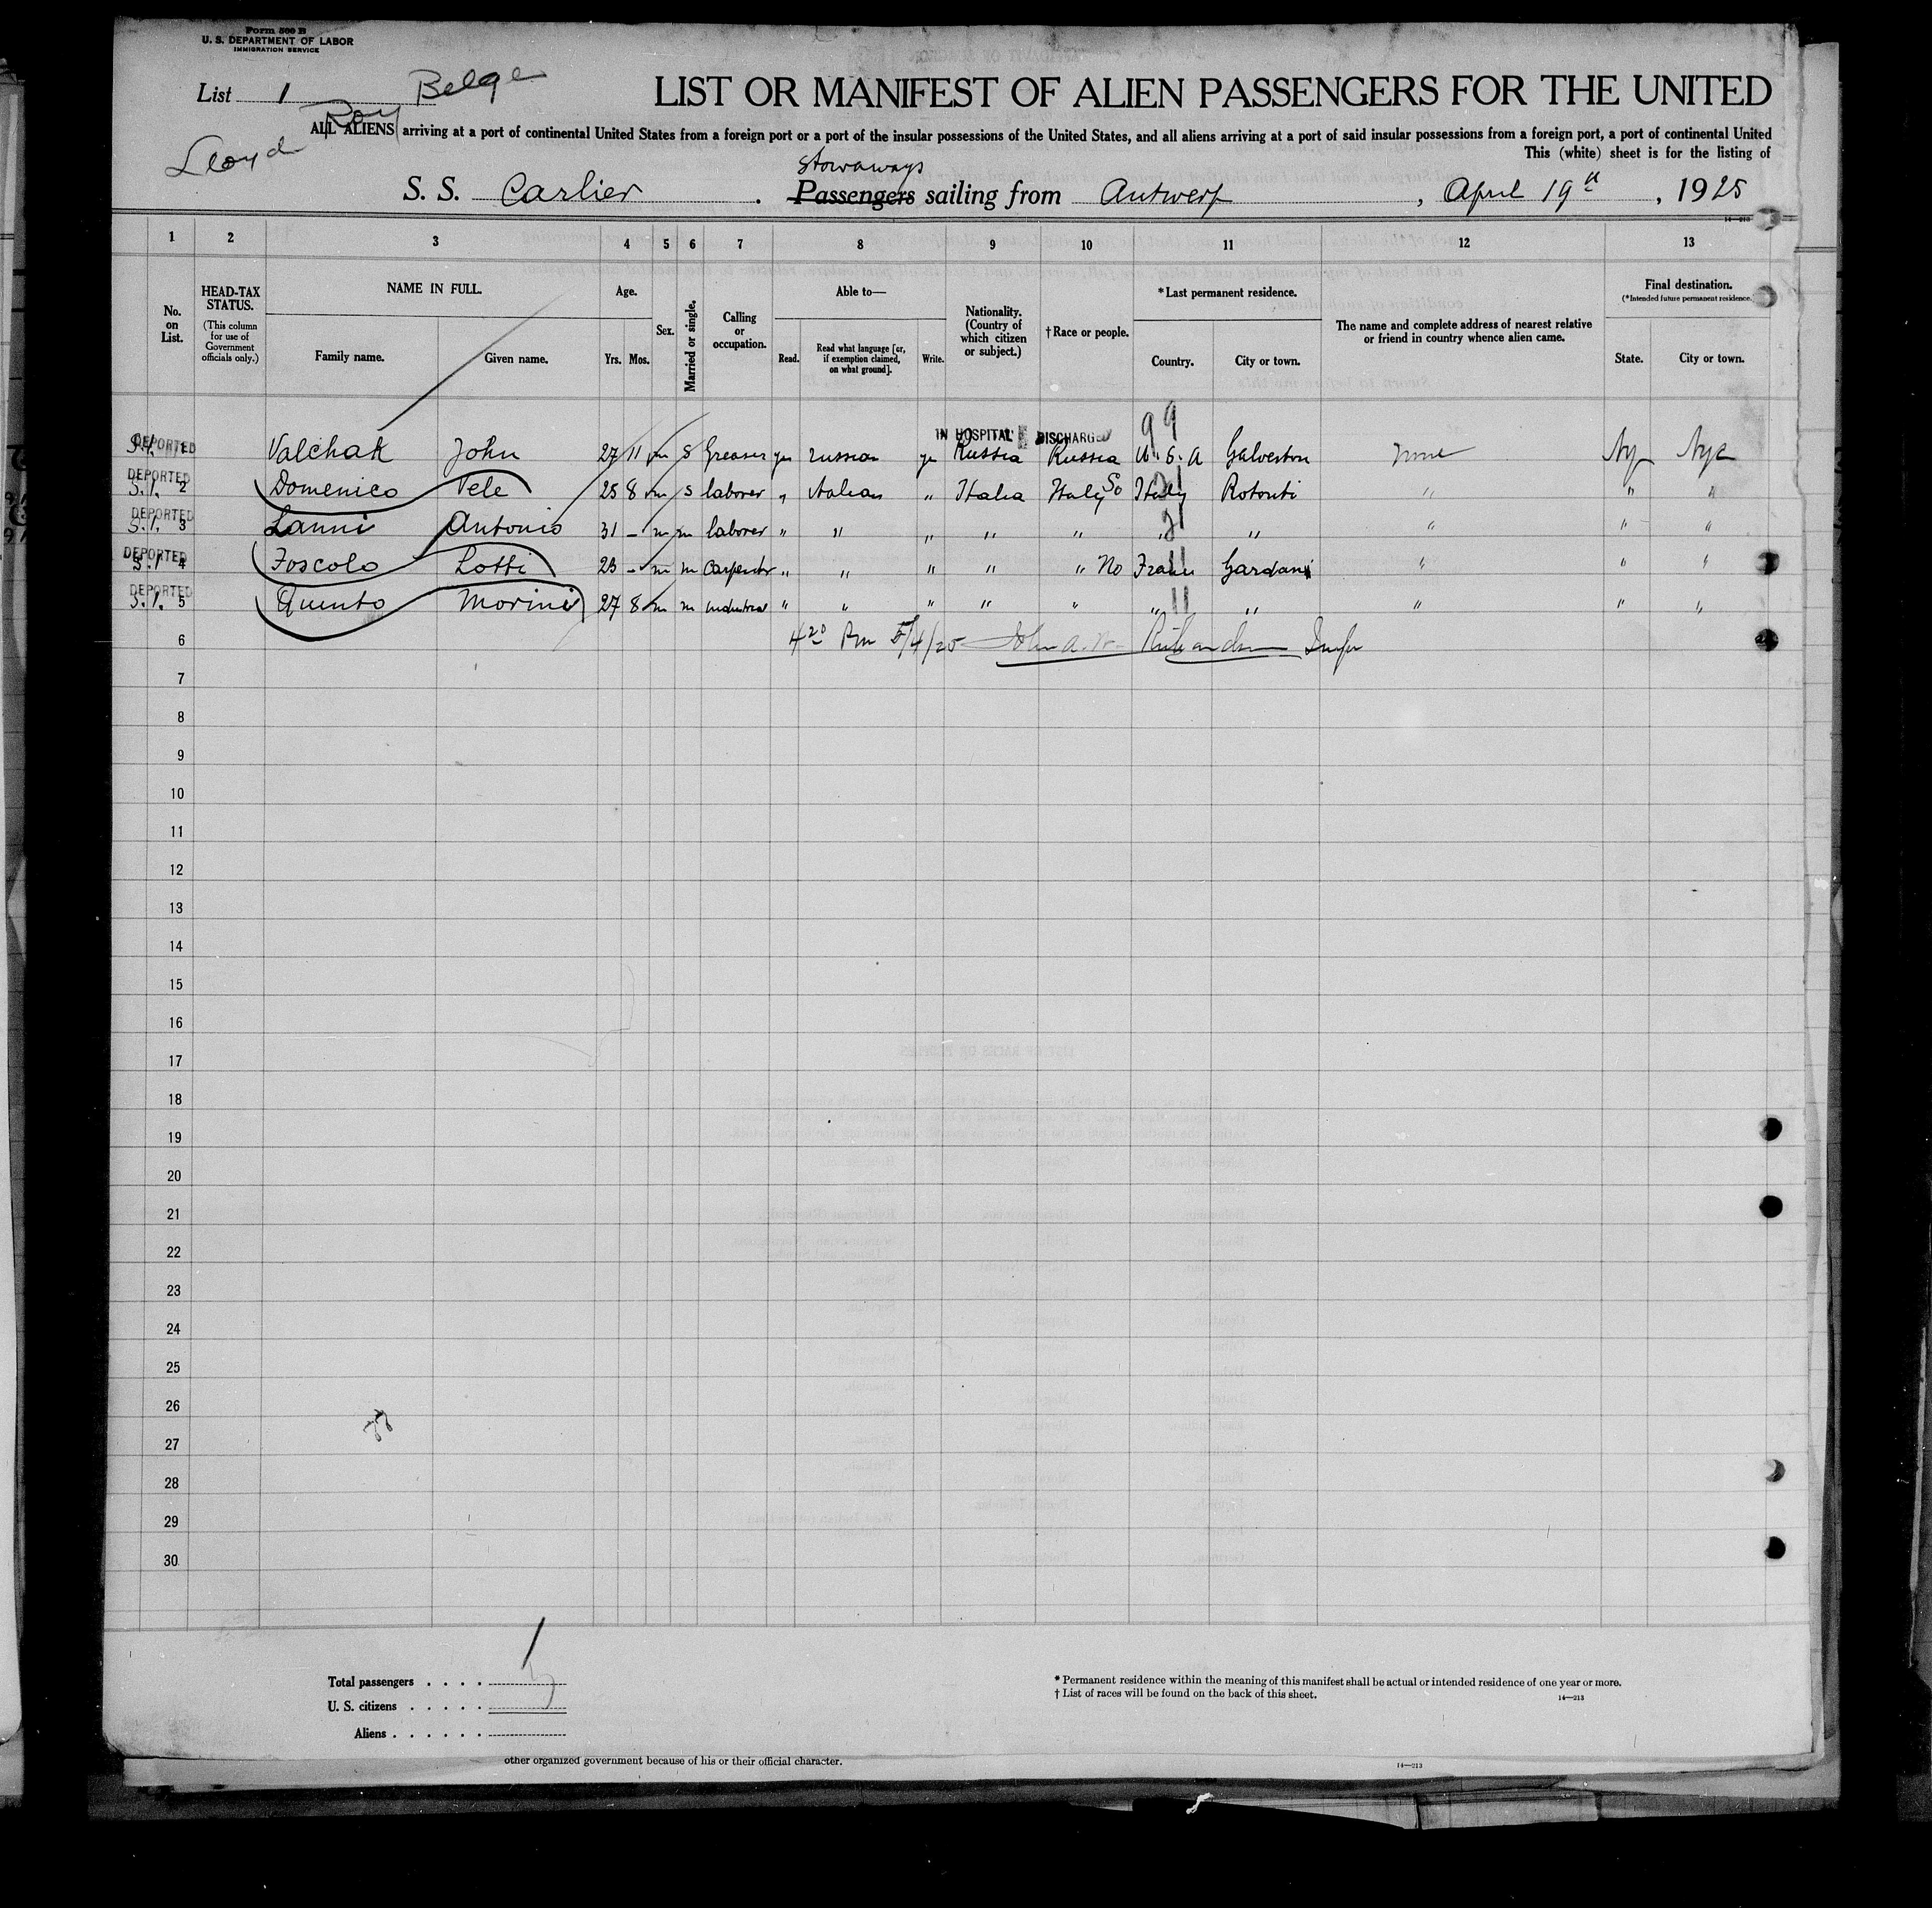 Form 500 B
U. S. DEPARTMENT OF LABOR
IMMIGRATION SERVICE
List 1
Lloyd Roy Belge
LIST OR MANIFEST OF ALIEN PASSENGERS FOR THE UNITED
ALL ALIENS arriving at a port of continental United States from a foreign port or a port of the insular possessions of the United States, and all aliens arriving at a port of said insular possessions from a foreign port, a port of continental United
This (white) sheet is for the listing of
stowaways
S. S. Carlier . Passengers sailing from Antwerp , April 19th , 1925
14—213
1 2 3 4 5 6 7 8 9 10 11 12 13
No. on List.
HEAD-TAX STATUS.
(This column for use of Government officials only.)
NAME IN FULL.
Family name. Given name.
Age.
Yrs. Mos.
Sex.
Married or single.
Calling or occupation.
Able to—
Read. Read what language [or, if exemption claimed, on what ground]. Write.
Nationality. (Country of which citizen or subject.)
† Race or people.
* Last permanent residence.
Country. City or town.
The name and complete address of nearest relative or friend in country whence alien came.
Final destination.
(* Intended future permanent residence.)
State. City or town.
IN HOSPITAL DISCHARGED 99
DEPORTED S.I. 1 Valchak John 27 11 m S Greaser yes russian ye Russia Russia U. S. A Galveston none Ny Nyc
DEPORTED S.I. 2 Domenico Tele 25 8 m s laborer " Italian " Italia Italy So Italy 21 Rotonti " " "
DEPORTED S.I. 3 Lanni Antonio 31 - m m laborer " " " " " " 21 " " " "
DEPORTED S.I 4 Foscolo Lotti 23 - m m Carpenter " " " " " No France 11 Gardani " " "
DEPORTED S.I. 5 Quinto Morini 27 8 m m industrial " " " " " " 11 " " " "
6 4 20 Pm 5/4/25 John A. W. Richardson Insp
7
8
9
10
11
12
13
14
15
16
17
18
19
20
21
22
23
24
25
26
27
28
29
30
Total passengers
U. S. citizens
Aliens
* Permanent residence within the meaning of this manifest shall be actual or intended residence of one year or more.
† List of races will be found on the back of this sheet.
14—213
other organized government because of his or their official character.
14—213